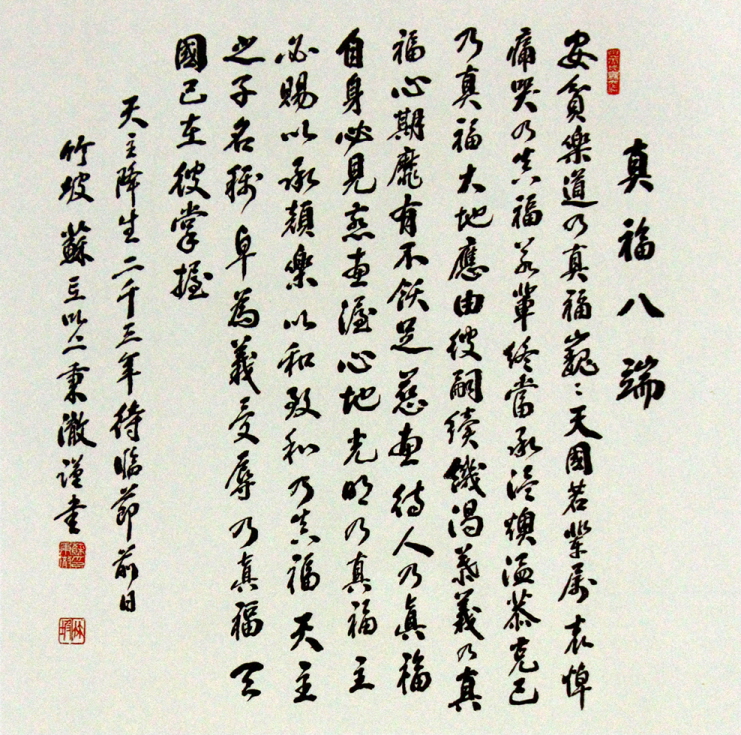 真福八端
安貧樂道乃真福巍々天國若輩屬哀悼
痛哭乃真福若輩終當承溫燠溫恭克己
乃真福大地應由彼嗣續饑渴慕義乃真
福心期靡有不飫足慈惠待人乃真福
自身必見慈惠渥心地光明乃真福主
必賜以承顏樂以和致和乃真福天主
之子名稱卓為義受辱乃真福天
國已在彼掌握
天主降生二千三年待臨節前日
竹坡 蘇 秉澈謹書